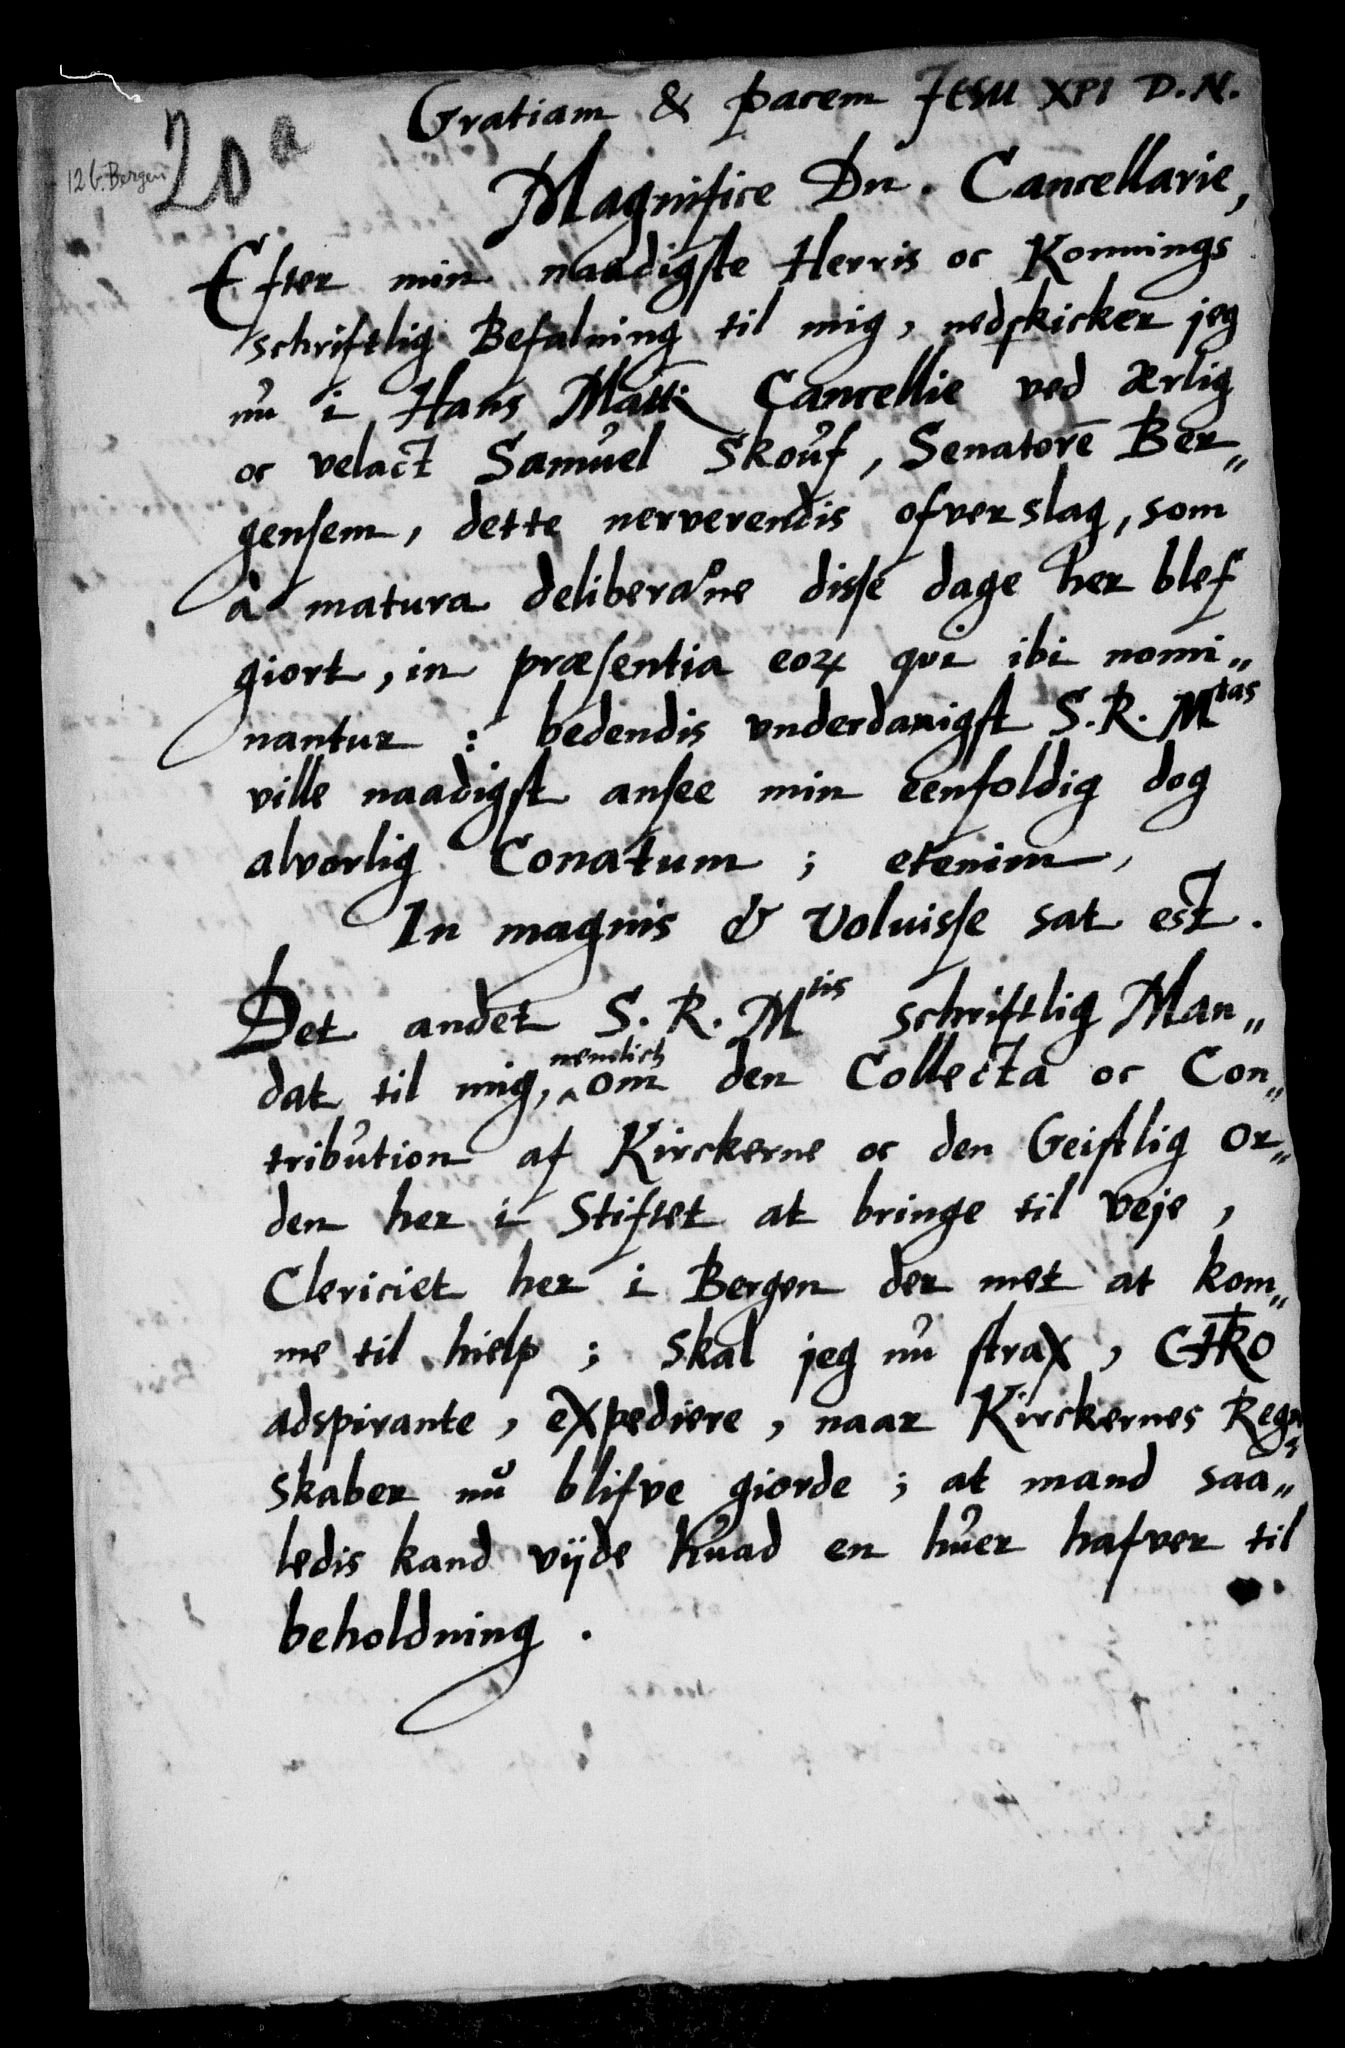 Gratiam & pacem Jesu XPI D.N.
20a
12 b. Bergen
Magnifice Dn. Cancellarie,
Efter min naadigste Herris oc Konnings
schriftlig Befalning til mig, nedskicker jeg
nu i Hans Matt: Cancellie ved ærlig
oc velact Samuel Skouf, Senatorē Ber„
gensem, dette nerverendis ofverslag, som
à matura deliberaōne disse dage her blef
giort, in præsentia eoꝝ qvi ibi nomi„
nantur : bedendis vnderdanigst S. R. Mtas
ville naadigst ansee min eenfoldig dog
alvorlig Conatum ; etenim,
In magnis & voluisse sat est.
Det andet S. R. Mtis schriftlig Man„
dat til mig, nemlich om den Collecta oc Con„
tribution af Kirckerne oc den Geistlig Or„
den her i Stiftet at bringe til veje,
Clericiet her i Bergen der met at kom„
me til hielp ; skal jeg nu strax, CHRO
adspirante, expediere, naar Kirckernes Regn„
skaber nu blifve giorde ; at mand saa„
ledis kand vijde huad en huer hafver til
beholdning.